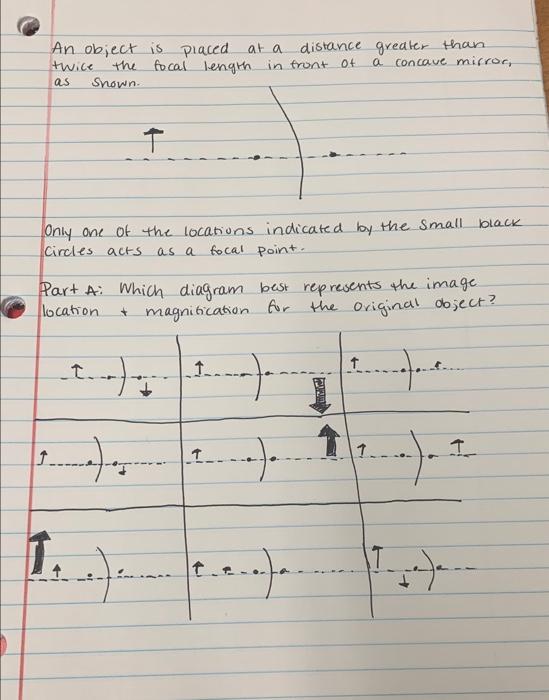 An object is placed at a distance greater than
twice the focal length in front of a concave mirror,
as shown.
Only one of the locations indicated by the small black
circles acts as a focal point.
Part A: Which diagram best represents the image
location + magnification for the original object?